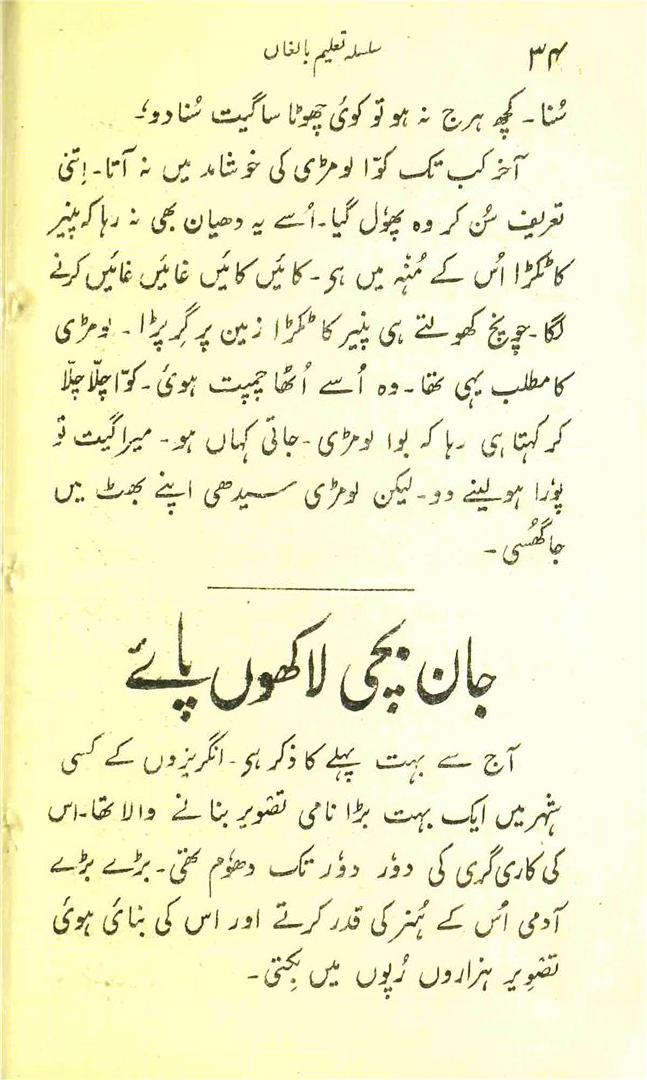 ۳۴ سلسلہ تعلیم بالغاں
سُنا۔ کچھ ہرج نہ ہو تو کوئی چھوٹا سا گیت سُنا دو؛
آخر کب تک کوّا لومڑی کی خوشامد میں نہ آتا۔ اِتنی
تعریف سُن کر وہ پھوٗل گیا۔ اُسے یہ دھیان بھی نہ رہا کہ پنیر
کا ٹکڑا اُس کے مُنْہ میں ہی۔ کائیں کائیں غائیں غائیں کرنے
لگا۔ چونچ کھولتے ہی پنیر کا ٹکڑا زمین پر گِر پڑا۔ لومڑی
کا مطلب یہی تھا۔ وہ اُسے اُٹھا چمپت ہوئی۔ کوّا چِلّا چِلّا
کر کہتا ہی رہا کہ بوا لومڑی۔ جاتی کہاں ہو۔ میرا گیت تو
پوٗرا ہولینے دو۔ لیکن لومڑی سیدھی اپنے بھٹ میں
جا گھُسی۔
جان بچی لاکھوں پائے
آج سے بہت پہلے کا ذکر ہی۔ انگریزوں کے کسی
شہر میں ایک بہت بڑا نامی تصْویر بنانے والا تھا۔ اس
کی کاری گری کی دوٗر دوٗر تک دھوٗم تھی۔ بڑے بڑے
آدمی اُس کے ہُنر کی قدر کرتے اور اس کی بنائی ہوئی
تصْویر ہزاروں رُپوں میں بِکتی۔